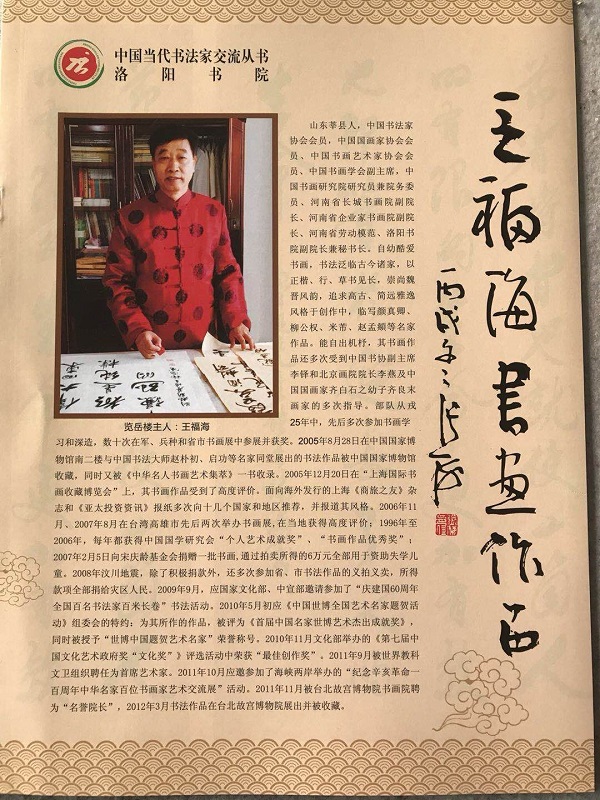 中国当代书法家交流丛书
洛阳书院
王福海书画作品
丙戌年
览岳楼主人：王福海
山东莘县人，中国书法家
协会会员，中国国画家协会会
员、中国书画艺术家协会会
员、中国书画学会副主席，中
国书画研究院研究员兼院务委
员、河南省长城书画院副院
长、河南省企业家书画院副院
长、河南省劳动模范、洛阳书
院副院长兼秘书长。自幼酷爱
书画，书法泛临古今诸家，以
正楷、行、草书见长，崇尚魏
晋风韵，追求高古、简远雅逸
风格于创作中，临写颜真卿、
柳公权、米芾、赵孟頫等名家
作品。能自出机杼，其书画作
品还多次受到中国书协副主席
李铎和北京画院院长李燕及中
国国画家齐白石之幼子齐良末
画家的多次指导。部队从戎
25年中，先后多次参加书画学
习和深造，数十次在军、兵种和省市书画展中参展并获奖。2005年8月28日在中国国家博
物馆南二楼与中国书法大师赵朴初、启功等名家同堂展出的书法作品被中国国家博物馆
收藏，同时又被《中华名人书画艺术集萃》一书收录。2005年12月20日在“上海国际书
画收藏博览会”上，其书画作品受到了高度评价。面向海外发行的上海《商旅之友》杂
志和《亚太投资资讯》报纸多次向十几个国家和地区推荐，并报道其风格。2006年11
月、2007年8月在台湾高雄市先后两次举办书画展，在当地获得高度评价；1996年至
2006年，每年都获得中国国学研究会“个人艺术成就奖”、“书画作品优秀奖”；
2007年2月5日向宋庆龄基金会捐赠一批书画，通过拍卖所得的6万元全部用于资助失学儿
童。2008年汶川地震，除了积极捐款外，还多次参加省、市书法作品的义拍义卖，所得
款项全部捐给灾区人民。2009年9月，应国家文化部、中宣部邀请参加了“庆建国60周年
全国百名书法家百米长卷”书法活动。2010年5月初应《中国世博全国艺术名家题贺活
动》组委会的特约：为其所作的作品，被评为《首届中国名家世博艺术杰出成就奖》，
同时被授予“世博中国题贺艺术名家”荣誉称号。2010年11月文化部举办的《第七届中
国文化艺术政府奖“文化奖”》评选活动中荣获“最佳创作奖”。2011年9月被世界教科
文卫组织聘任为首席艺术家。2011年10月应邀参加了海峡两岸举办的“纪念辛亥革命一
百周年中华名家百位书画家艺术交流展”活动。2011年11月被台北故宫博物院书画院聘
为“名誉院长”，2012年3月书法作品在台北故宫博物院展出并被收藏。